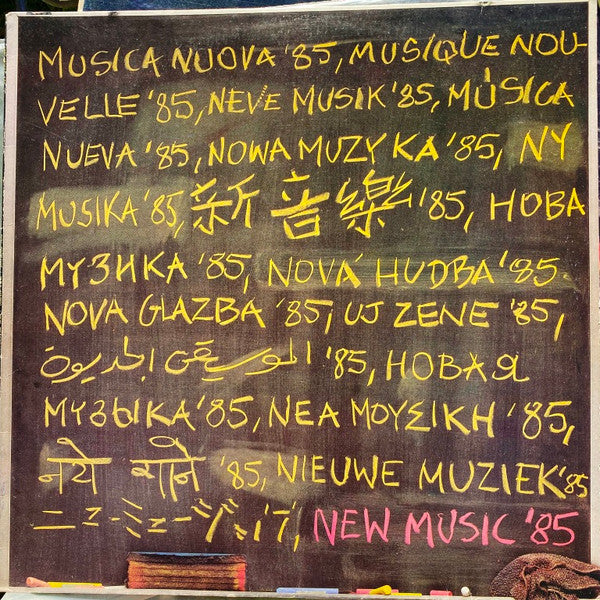 MUSICA NUOVA '85, MUSIQUE NOU-
VELLE '85, NEVE MUSIK '85, MÚSICA
NUEVA '85, NOWA MUZYKA '85, NY
MUSIKA '85, 新音樂 '85, НОВА
МУЗИКА '85, NOVÁ HUDBA '85.
NOVA GLAZBA '85, UJ ZENE '85,
الموسيقى الجديدة '85, НОВАЯ
МУЗЫКА '85, ΝΕΑ ΜΟΥΣΙΚΗ '85,
नये गाने '85, NIEUWE MUZIEK '85
ニューミュージック, NEW MUSIC '85